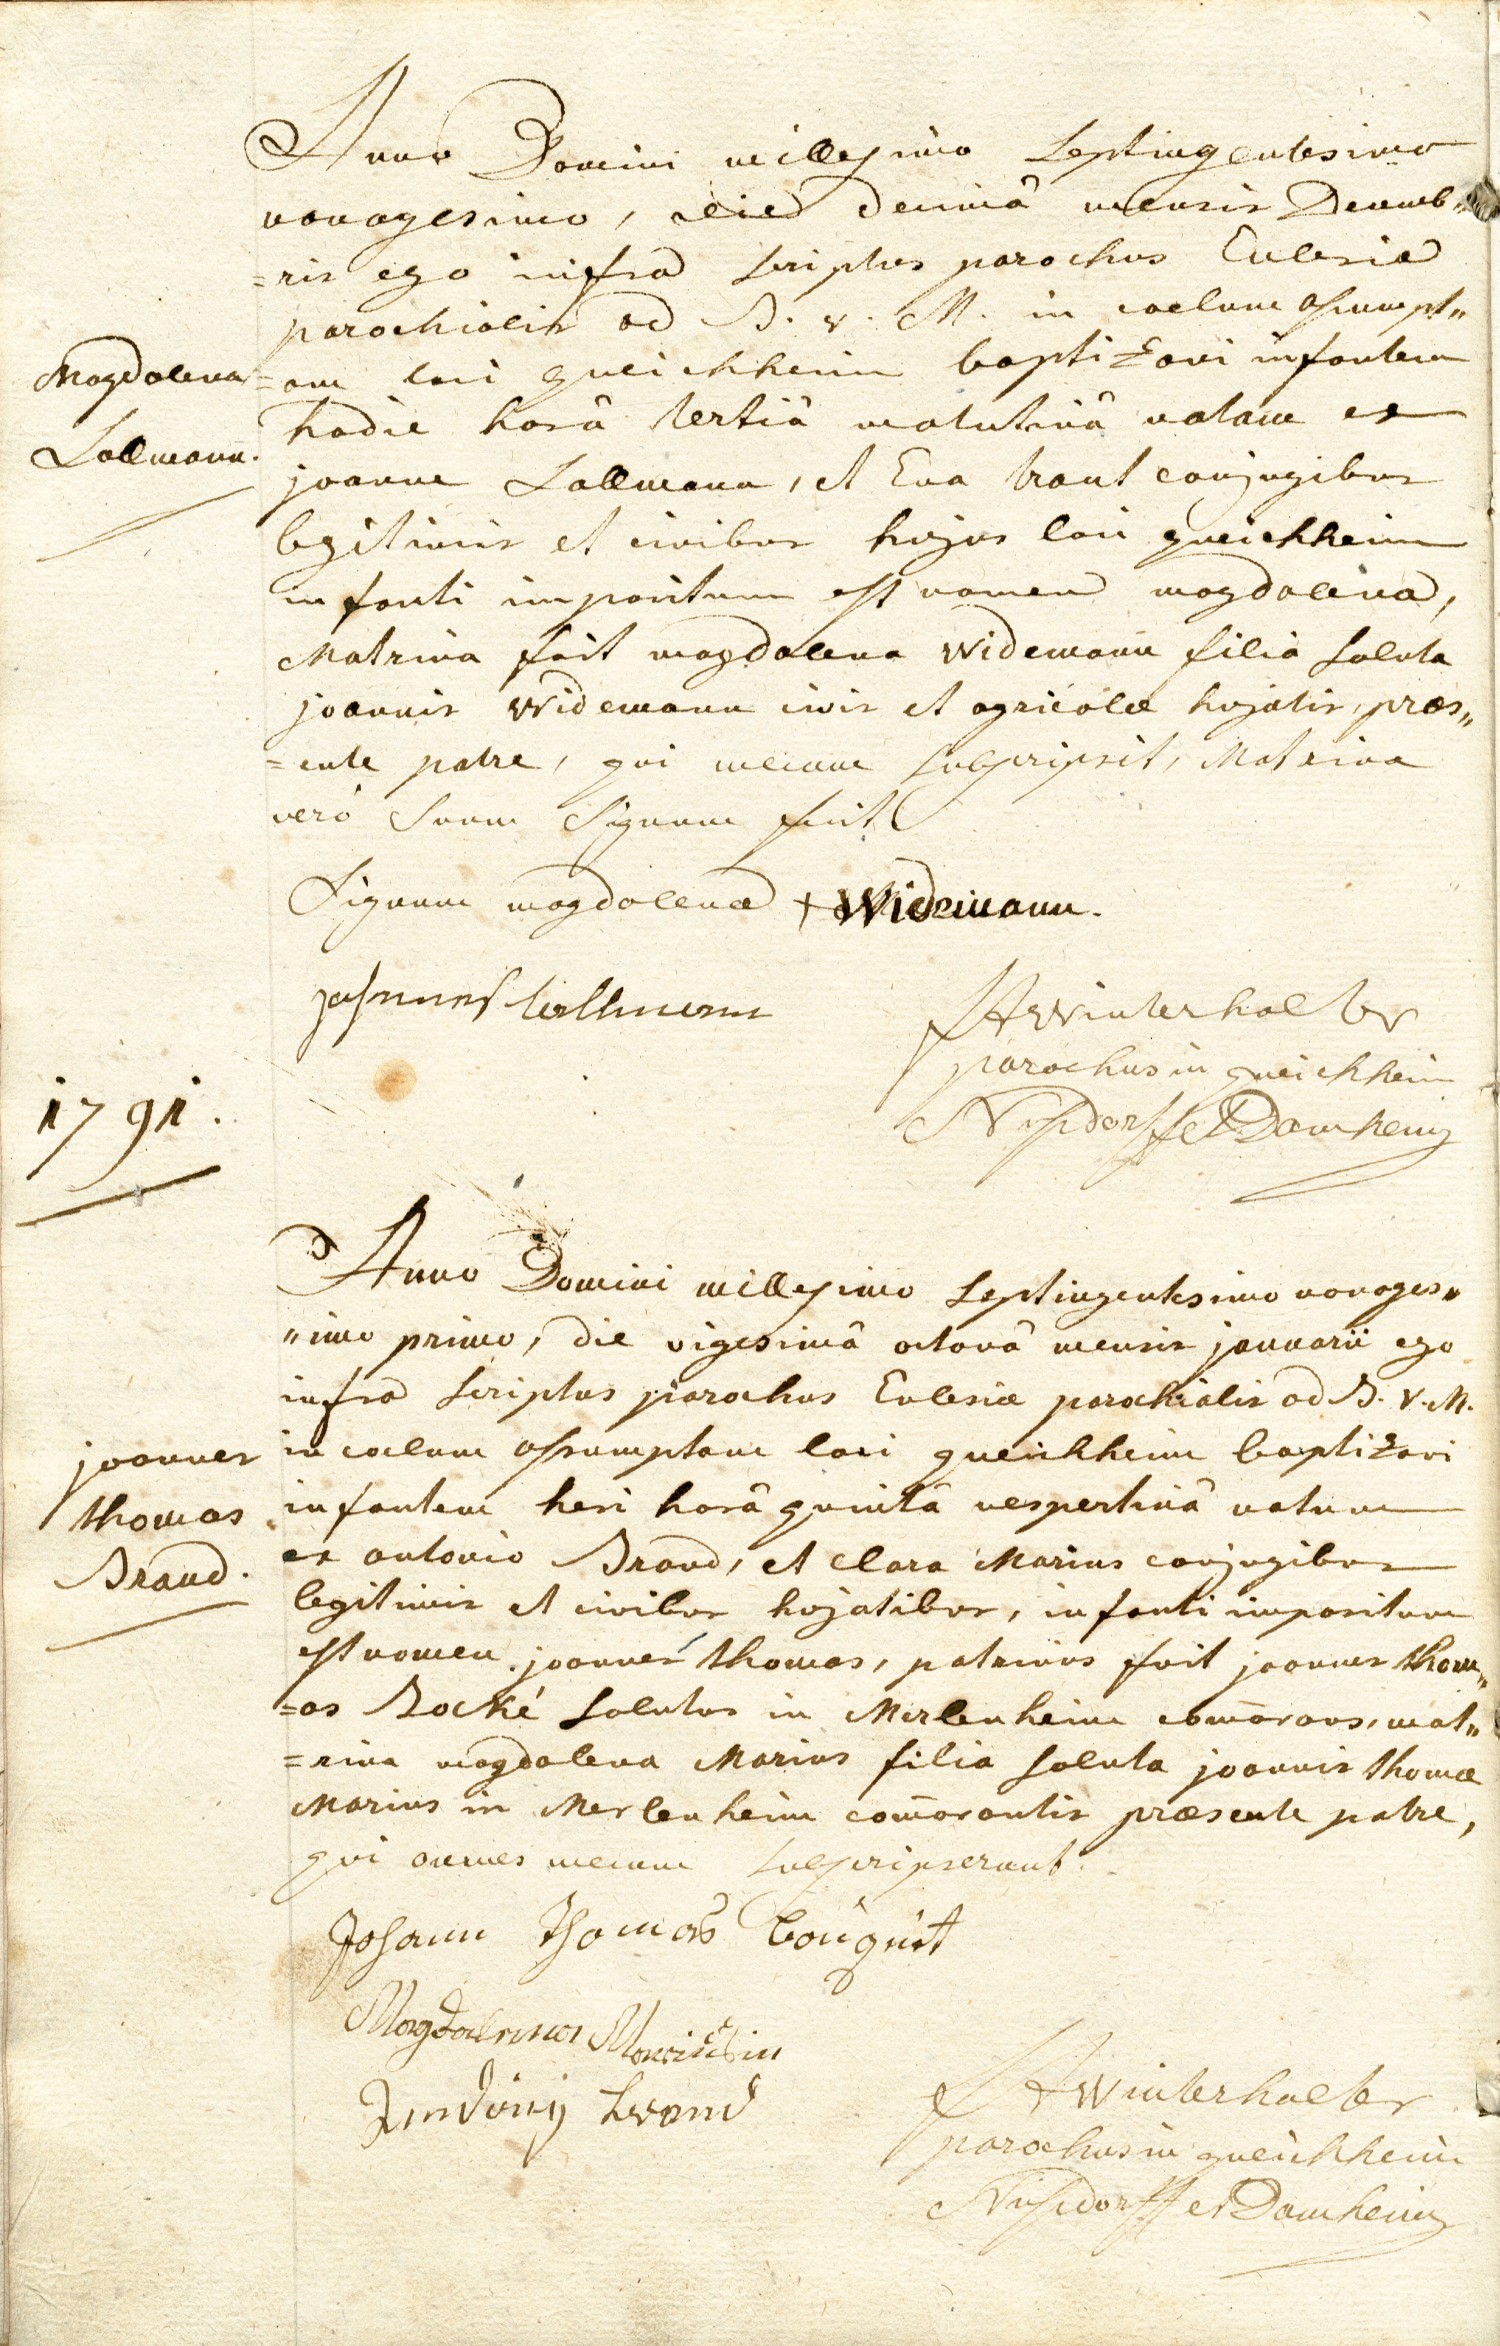 Anno Domini millesimo Septingentesimo
nonagesimo, die decimâ mensis Decemb„
=ris ego infra Scriptus parochus Ecclesiæ
parochialis ad B. v. M. in coelum assumpt„
Magdalena
=am loci queichheim baptizavi infantem
hodie horâ tertiâ matutinâ natam ex
Lallmann.
joanne Lallmann, et Eva traut conjugibus
legitimis et civibus hujus loci queichheim
infanti impositum est nomen magdalena,
Matrina fuit magdalena Widemann filia soluta
joannis Widemann civis et agricolæ hujatis, præs„
=ente patre, qui mecum subscripsit, Matrina
verò Suum Signum fecit
Signum magdalenæ + Widemann.
Johannes Lallmann
FAWinterhalter
parochus in queichheim
Nussdorff et Damheim
1791.
Anno Domini millesimo Septingentesimo nonages„
„imo primo, die vigesimâ octavâ mensis januarii ego
infra Scriptus parochus Ecclesiæ parochialis ad B. V. M.
joannes
in coelum assumptam loci queichheim baptizavi
thomas
infantem heri horâ quintâ vespertinâ natum
Braud.
ex antonio Braud, et Clara Marius conjugibus
legitimis et civibus hujatibus, infanti impositum
est nomen joannes thomas, patrinus fuit joannes thom„
=as Bocké solutus in Merlenheim com̄orans, mat„
=rina magdalena Marius filia soluta joannis thomæ
Marius in Merlenheim com̄orantis præsente patre,
qui omnes mecum subscripserunt.
Johann Thomas
Magdalena Mariusin
Andoni
FAWinterhalter
parochus in queichheim
Nussdorff et Damheim